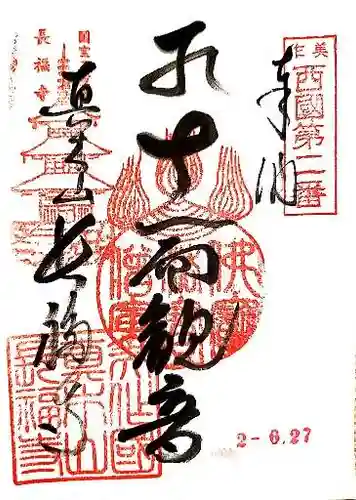 美作
西國第二番
奉納
十一面観音
真木山
長福寺
長福寺
佛法僧寶
2-6.27